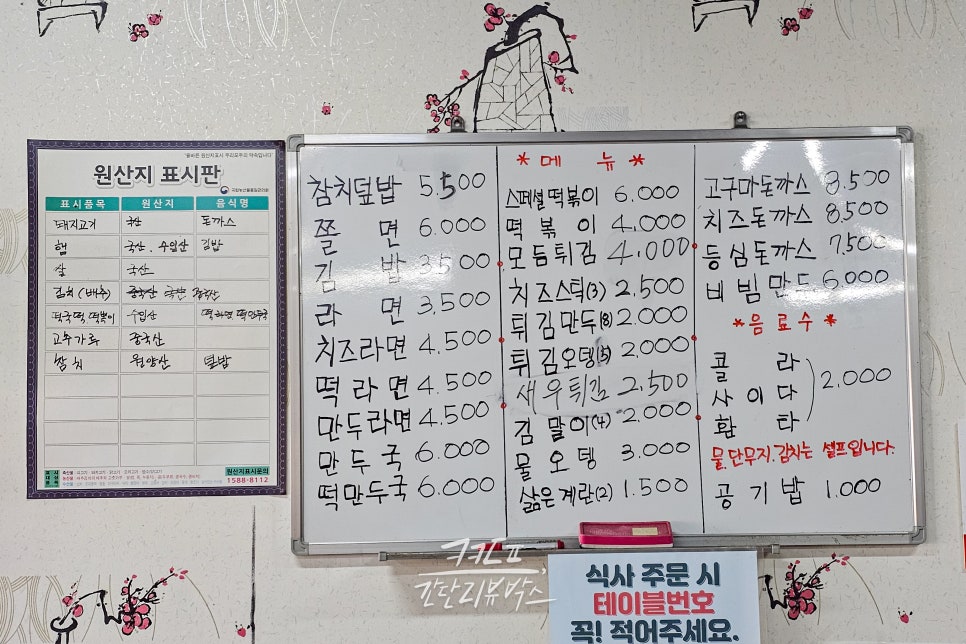 '올바른 원산지표시 우리모두의 약속입니다'
원산지 표시판
국립농산물품질관리원
표시품목 원산지 음식명
돼지고기 국산 돈까스
햄 국산. 수입산 김밥
쌀 국산
김치(배추) 중국산
떡국떡 떡볶이 수입산
고추가루 중국산
참치 원양산 덮밥
원산지표시문의
1588-8112
*메 뉴*
참치덮밥 5.500
쫄 면 6.000
김 밥 3.500
라 면 3,500
치즈라면 4.500
떡라면 4.500
만두라면 4.500
만두국 6.000
떡만두국 6.000
스페셜떡볶이 6.000
떡 볶 이 4.000
모듬튀김 4,000
치즈스틱(3) 2,500
튀김만두(8) 2.000
튀김오뎅(5) 2,000
새우튀김 2.500
김말이(4) 2.000
물오뎅 3.000
삶은계란(2) 1.500
고구마돈까스 8.500
치즈돈까스 8,500
등심돈까스 7,500
비빔만두 6.000
*음료수*
콜 라
사이다 2.000
환 타
물.단무지.김치는 셀프입니다.
공기밥 1.000
커므
간단리뷰박스
식사 주문 시
테이블번호
꼭! 적어주세요.